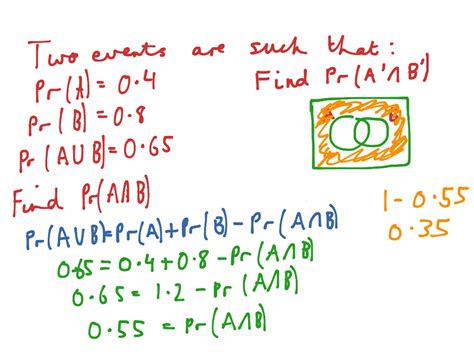 Two events are such that:
Pr(A) = 0.4
Pr(B) = 0.8
Pr(A∪B) = 0.65
Find Pr(A∩B)
Pr(A∪B)=Pr(A)+Pr(B)-Pr(A∩B)
0.65 = 0.4+0.8-Pr(A∩B)
0.65 = 1.2 - Pr(A∩B)
0.55 = Pr(A∩B)
Find Pr(A'∩B')
A B
1-0.55
0.35